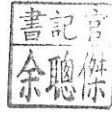 書記官
余聰傑